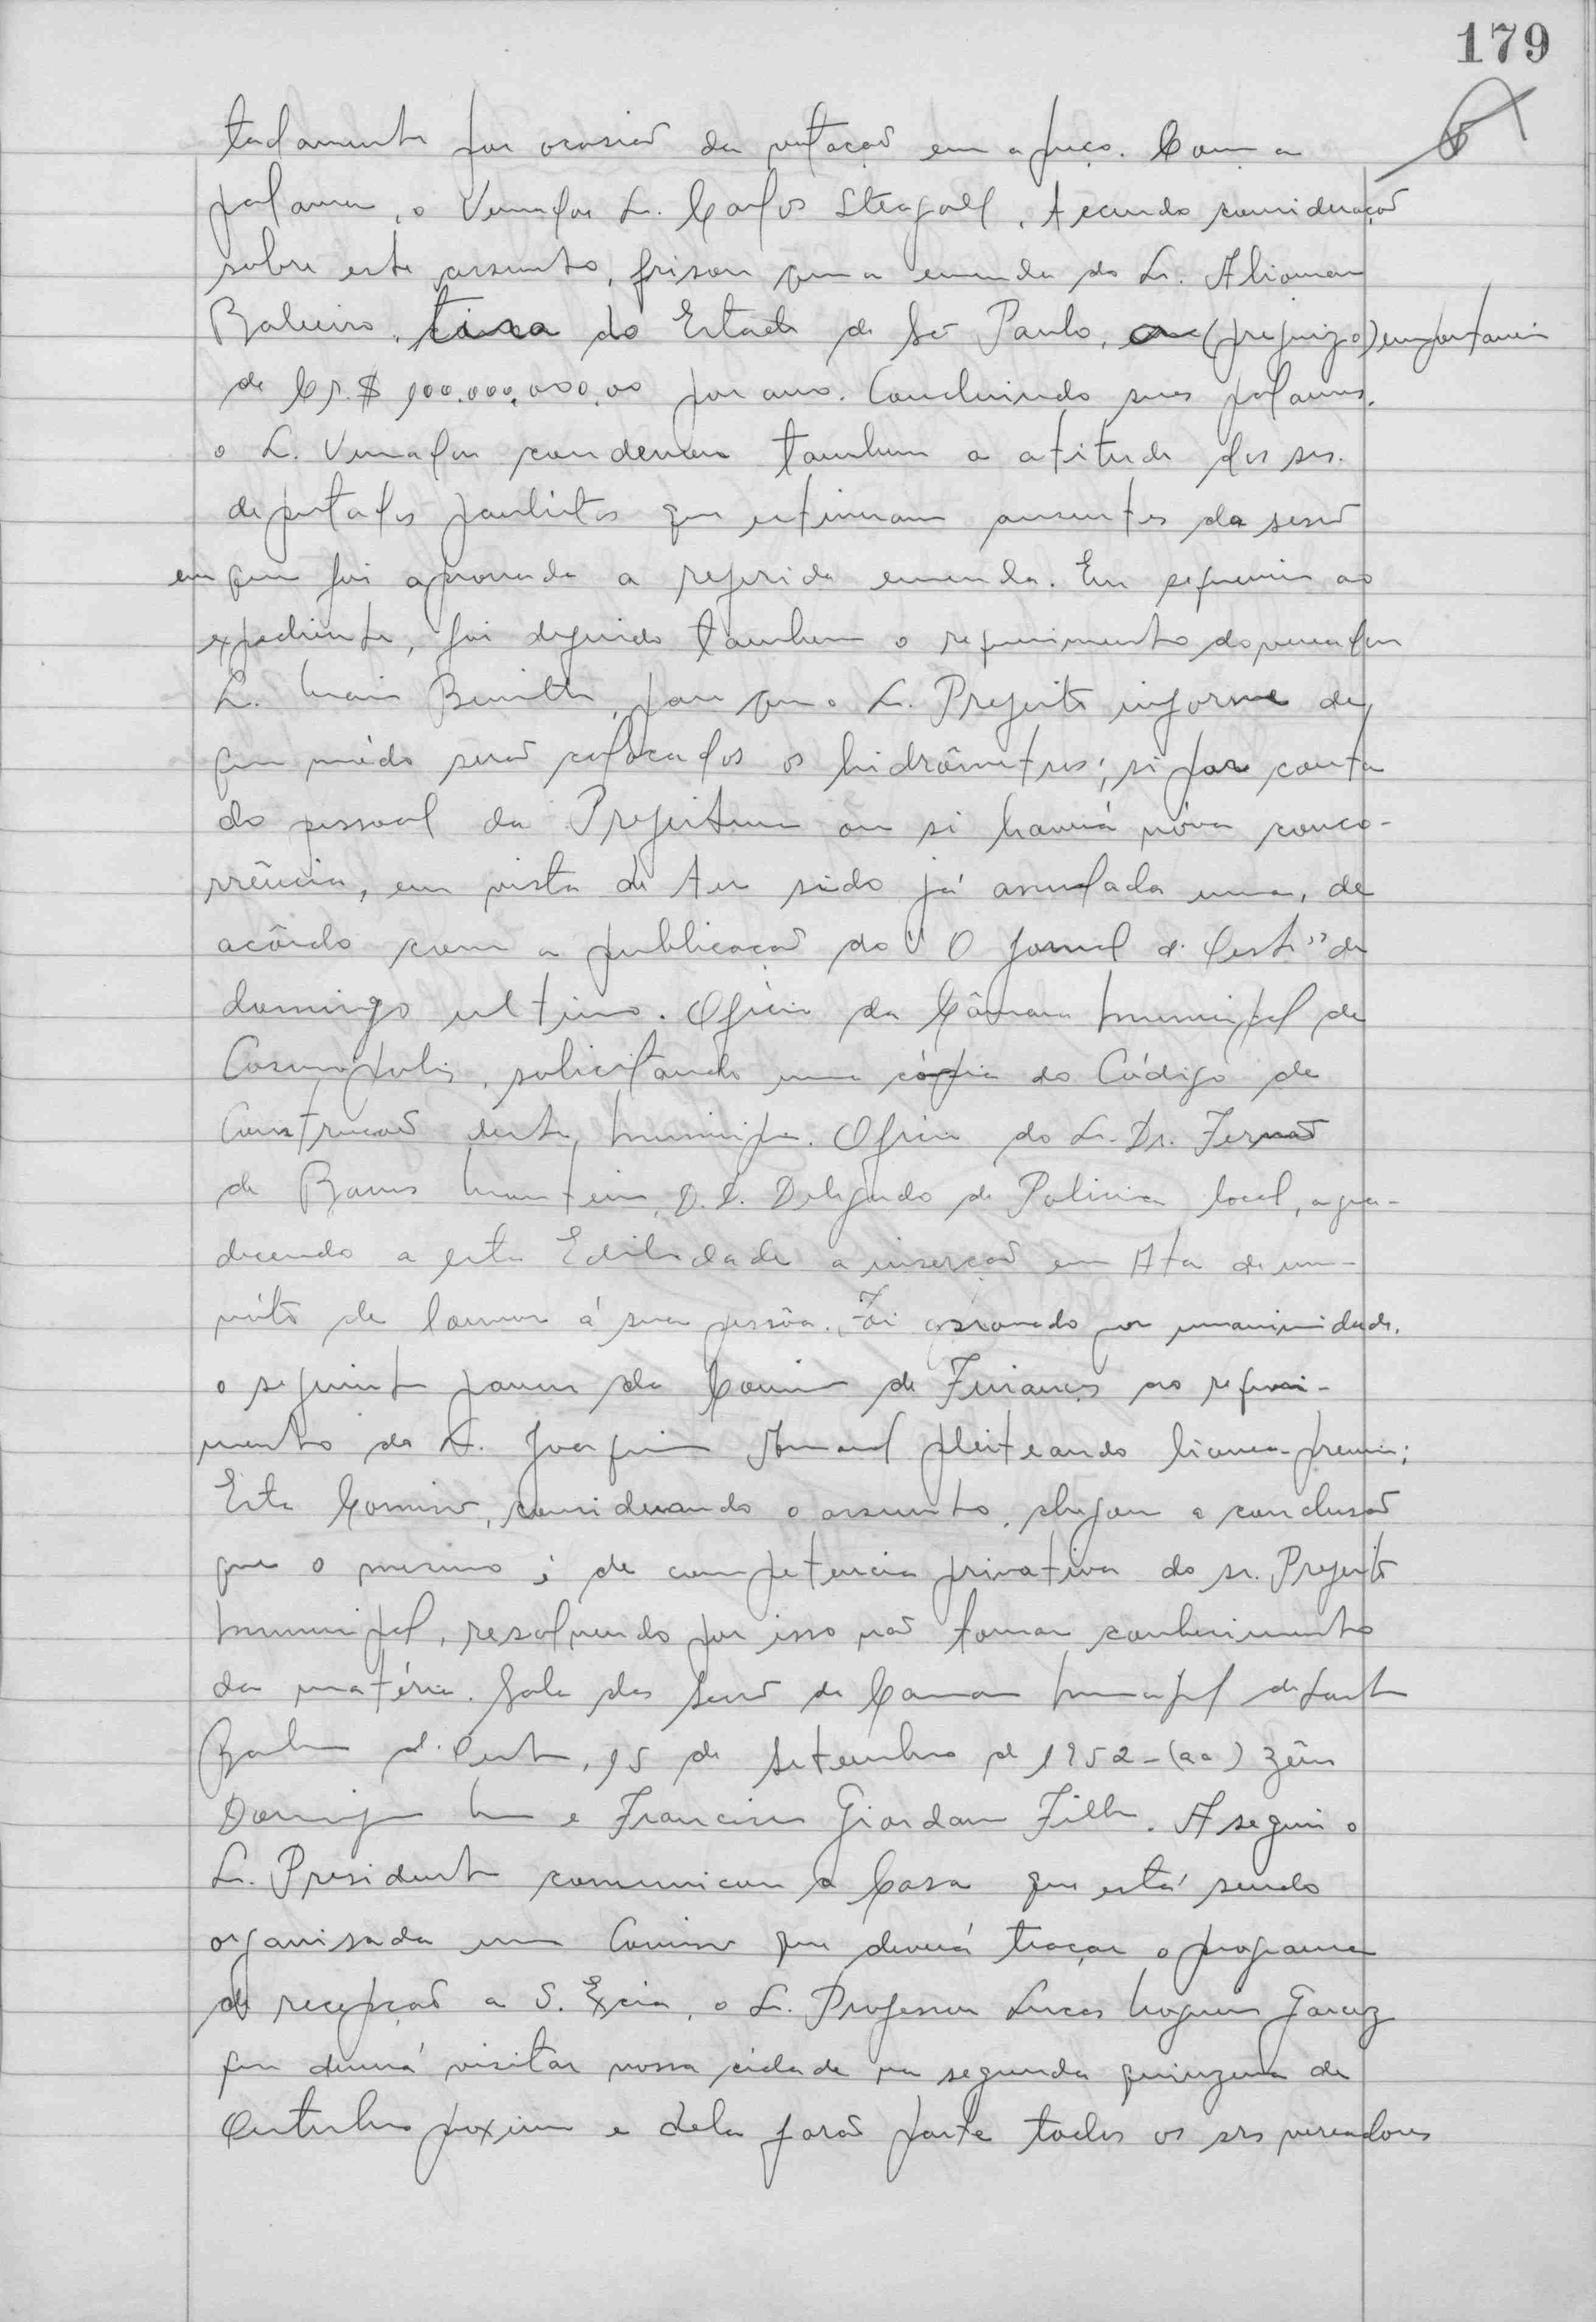 179
tadamente por ocasião da votação em apreço. Com a
palavra, o Vereador Sr. Carlos Steagall, tecendo consideração
sobre este assunto, frisou que a emenda do Sr. Aliomar
Baleeiro, tira do Estado de São Paulo, a (prejuizo) importancia
de Cr.$ 900.000.000,00 por ano. Concluindo suas palavras,
o Sr. Vereador condenou tambem a atitude dos srs.
deputados paulistas que estiveram ausentes da sessão
em que foi aprovada a referida emenda. Em sequencia ao
expediente, foi deferido tambem o requerimento do vereador
Sr. Benith, para que o Sr. Prefeito informe de
que módo serão colocados os hidrômetros; si por conta
do pessoal da Prefeitura ou si haverá nóva conco-
rrência, em vista de ter sido já anulada uma, de
acôrdo com a publicação do "O Jornal d'Oeste" de
domingo ultimo. Oficio da Câmara Municipal de
Cosmopolis, solicitando uma cópia do Código de
Construção deste municipio. Oficio do Sr. Dr. Fernão
de Barros Monteiro, D.D. Delegado de Policia local, agra-
decendo a esta Edilidade a inserção em Ata de um
vóto de louvor á sua pessôa. Foi aprovado por unanimidade,
o seguinte parecer da Comissão de Finanças ao requeri-
mento do Sr. Joaquim Amaral pleiteando licença-premio;
Esta Comissão, considerando o assunto, chegou a conclusão
que o mesmo é de competencia privativa do sr. Prefeito
Municipal, resolvendo por isso não tomar conhecimento
da matéria. Sala das Sessões da Camara Municipal de Santa
Barbara d'Oeste, 15 de Setembro de 1952 - (aa)
Domingos e Francisco Giordano Filho. A seguir o
Sr. Presidente comunicou a Casa que está sendo
organisada uma Comissão que deverá traçar o programa
de recepção a S. Excia, o Sr. Professor Lucas Nogueira Garcez
que deverá visitar nossa cidade na segunda quinzena de
Outubro proximo e dela farão parte todos os srs vereadores